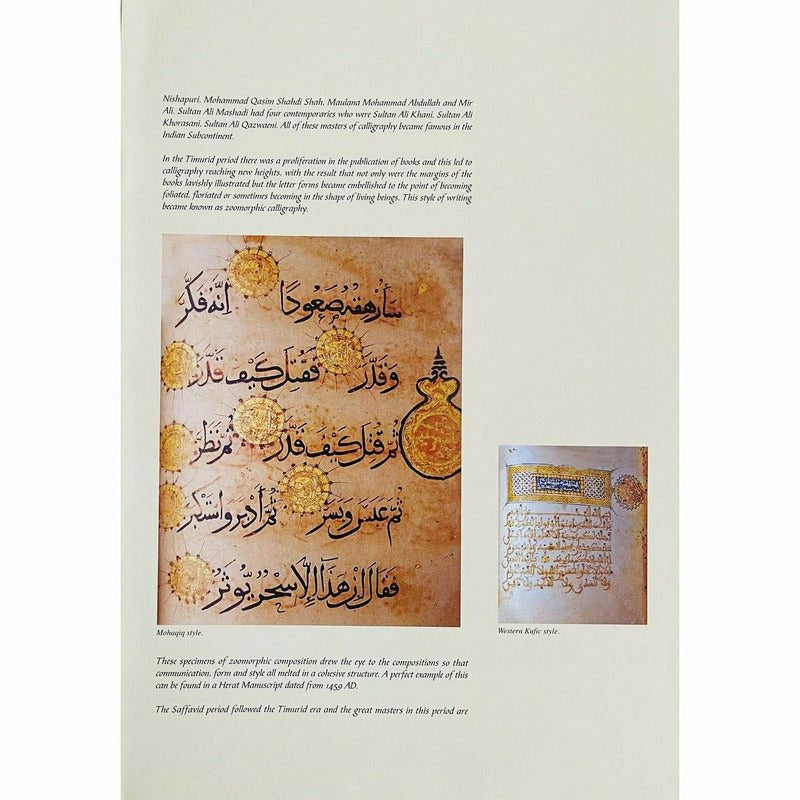 Nishapuri, Mohammad Qasim Shahdi Shah, Maulana Mohammad Abdullah and Mir
Ali. Sultan Ali Mashadi had four contemporaries who were Sultan Ali Khani, Sultan Ali
Khorasani, Sultan Ali Qazwaeni. All of these masters of calligraphy became famous in the
Indian Subcontinent.
In the Timurid period there was a proliferation in the publication of books and this led to
calligraphy reaching new heights, with the result that not only were the margins of the
books lavishly illustrated but the letter forms became embellished to the point of becoming
foliated, floriated or sometimes becoming in the shape of living beings. This style of writing
became known as zoomorphic calligraphy.
سَأُرْهِقُهُ صَعُودًا إِنَّهُ فَكَّرَ
وَقَدَّرَ فَقُتِلَ كَيْفَ قَدَّرَ
ثُمَّ قُتِلَ كَيْفَ قَدَّرَ ثُمَّ نَظَرَ
ثُمَّ عَبَسَ وَبَسَرَ ثُمَّ أَدْبَرَ وَاسْتَكْبَرَ
فَقَالَ إِنْ هَذَا إِلَّا سِحْرٌ يُؤْثَرُ
Mohaqiq style.
Western Kufic style.
These specimens of zoomorphic composition drew the eye to the compositions so that
communication, form and style all melted in a cohesive structure. A perfect example of this
can be found in a Herat Manuscript dated from 1459 AD.
The Saffavid period followed the Timurid era and the great masters in this period are